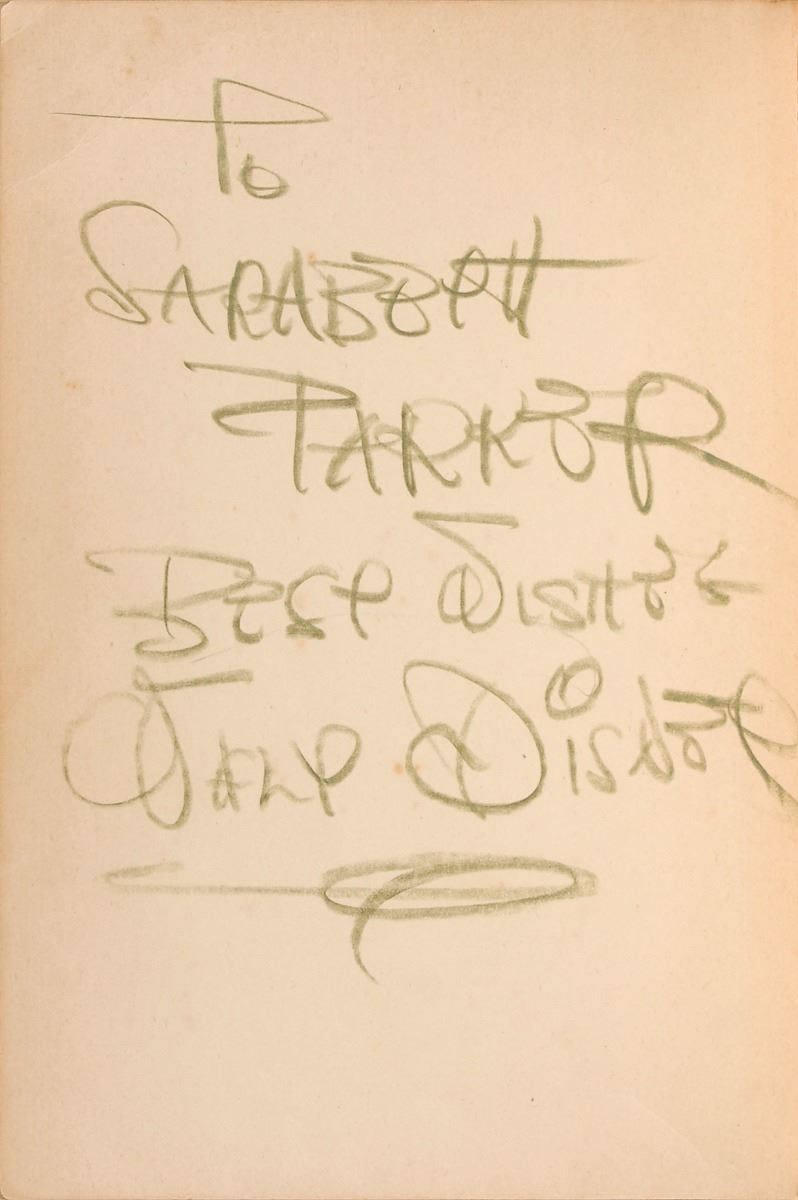 To
SARABETH
PARKER
BEST WISHES
WALT DISNEY